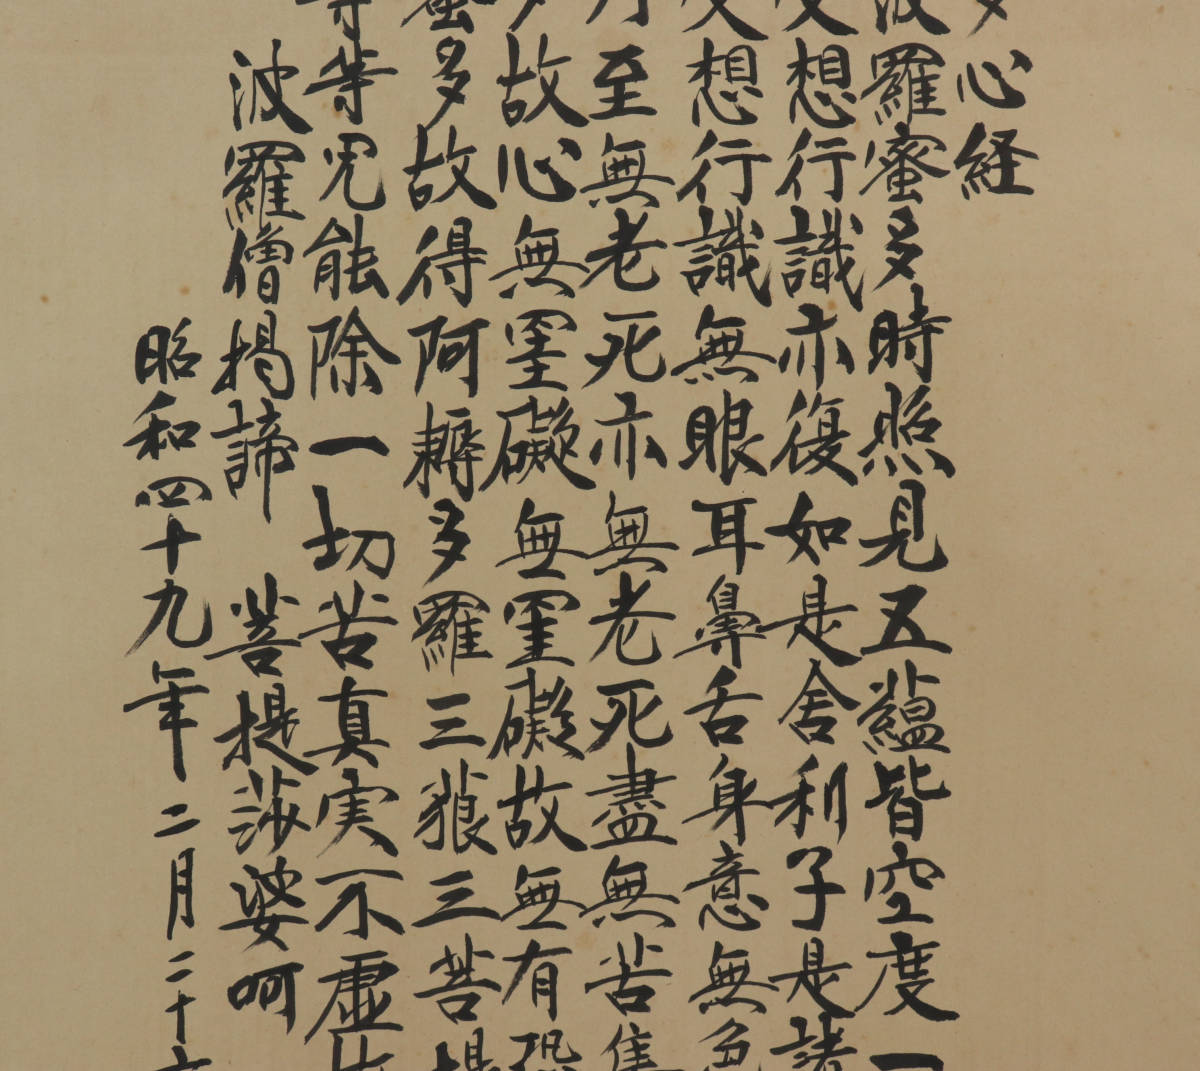 心経
波羅蜜多時照見五蘊皆空度一
想行識亦復如是舎利子是諸
想行識無眼耳鼻舌身意無色
至無老死亦無老死盡無苦集
故心無罣礙無罣礙故無有恐
蜜多故得阿耨多羅三藐三菩提
等等咒能除一切苦真実不虚
波羅僧揭諦 菩提莎婆呵
昭和四十九年二月二十